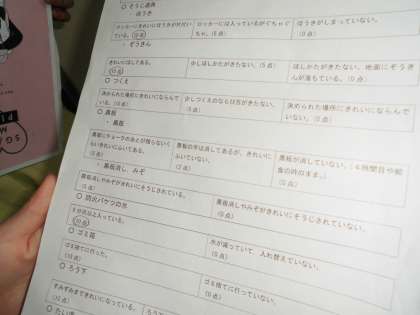 ○ そうじ道具
・ほうき
ロッカーにきれいにほうきが片付いている。（10点）
ロッカーには入っているがぐちゃぐちゃ。（5点）
ほうきがしまっていない。（0点）
・ぞうきん
きれいにほしてある。（10点）
かしほしかたがきたない。（5点）
ほしかたがきたない、地面にぞうきんが落ちている。（0点）
○ つくえ
決められた場所にきれいにならんでいる。（10点）
少しつくえのならび方がきたない。（5点）
決められた場所にきれいにならんでいない。（0点）
○ 黒板
・黒板
黒板にチョークのあとが残らないくらいきれいにふいている。
黒板の字は消してあるが、きれいにふいていない。
黒板が消していない。（4時間目や給食の時のまま。）
・黒板消し、みぞ
黒板消しやみぞがきれいにそうじされている。（5点）
黒板消しやみぞがきれいにそうじされていない。（0点）
○ 防火バケツの水
8分目以上入っている。（10点）
水が減っていて、入れ替えていない。（0点）
○ ゴミ箱
ゴミ捨てに行った。（10点）
ゴミ捨てに行っていない。（0点）
○ ろう下
すみずみまできれいになっている。（10点）